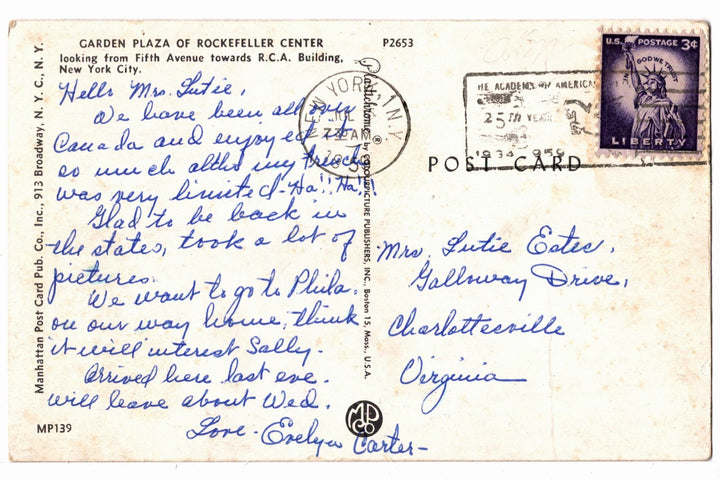 GARDEN PLAZA OF ROCKEFELLER CENTER
looking from Fifth Avenue towards R.C.A. Building,
New York City.
P2653
Hello Mrs. Lutie,
We have been all over
Canada and enjoyed it
so much altho my French
was very limited - Ha!! Ha!!
Glad to be back in
the states, took a lot of
pictures.
We want to go to Phila.
on our way home, think
it will interest Sally.
Arrived here last eve.
will leave about Wed.
Love - Evelyn Carter -
MP139
Manhattan Post Card Pub. Co., Inc., 913 Broadway, N. Y. C., N. Y.
Plastichrome ® by COLOURPICTURE PUBLISHERS, INC., Boston 15, Mass., U.S.A.
MP
CO
NEW YORK, 1 N.Y.
JUL
AM
THE ACADEMY OF AMERICAN
25TH YEAR
1934 1959
U.S. POSTAGE 3¢
IN GOD WE TRUST
LIBERTY
POST CARD
Mrs. Lutie Estes,
Galloway Drive,
Charlottesville
Virginia